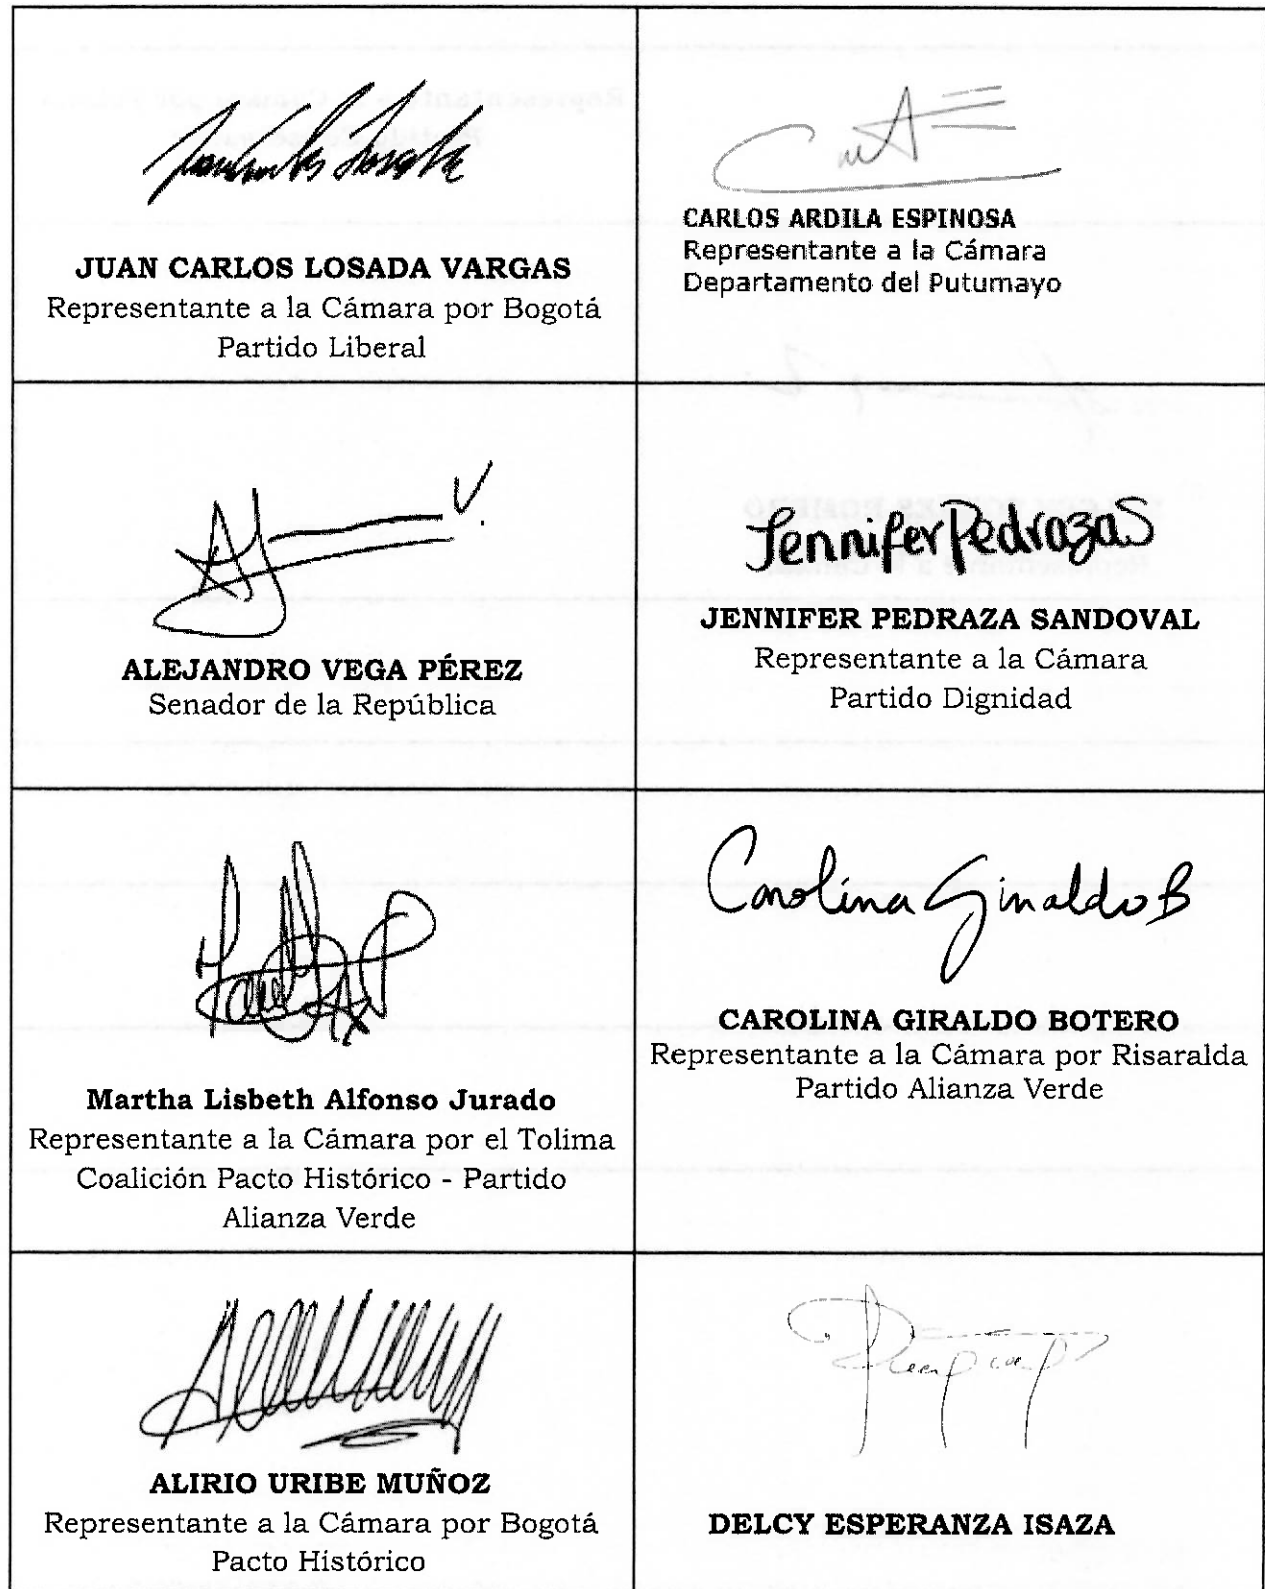 JUAN CARLOS LOSADA VARGAS
Representante a la Cámara por Bogotá
Partido Liberal
CARLOS ARDILA ESPINOSA
Representante a la Cámara
Departamento del Putumayo
V.
ALEJANDRO VEGA PÉREZ
Senador de la República
Jennifer Pedraza S
JENNIFER PEDRAZA SANDOVAL
Representante a la Cámara
Partido Dignidad
Martha Lisbeth Alfonso Jurado
Representante a la Cámara por el Tolima
Coalición Pacto Histórico - Partido
Alianza Verde
Carolina Giraldo B
CAROLINA GIRALDO BOTERO
Representante a la Cámara por Risaralda
Partido Alianza Verde
ALIRIO URIBE MUÑOZ
Representante a la Cámara por Bogotá
Pacto Histórico
DELCY ESPERANZA ISAZA